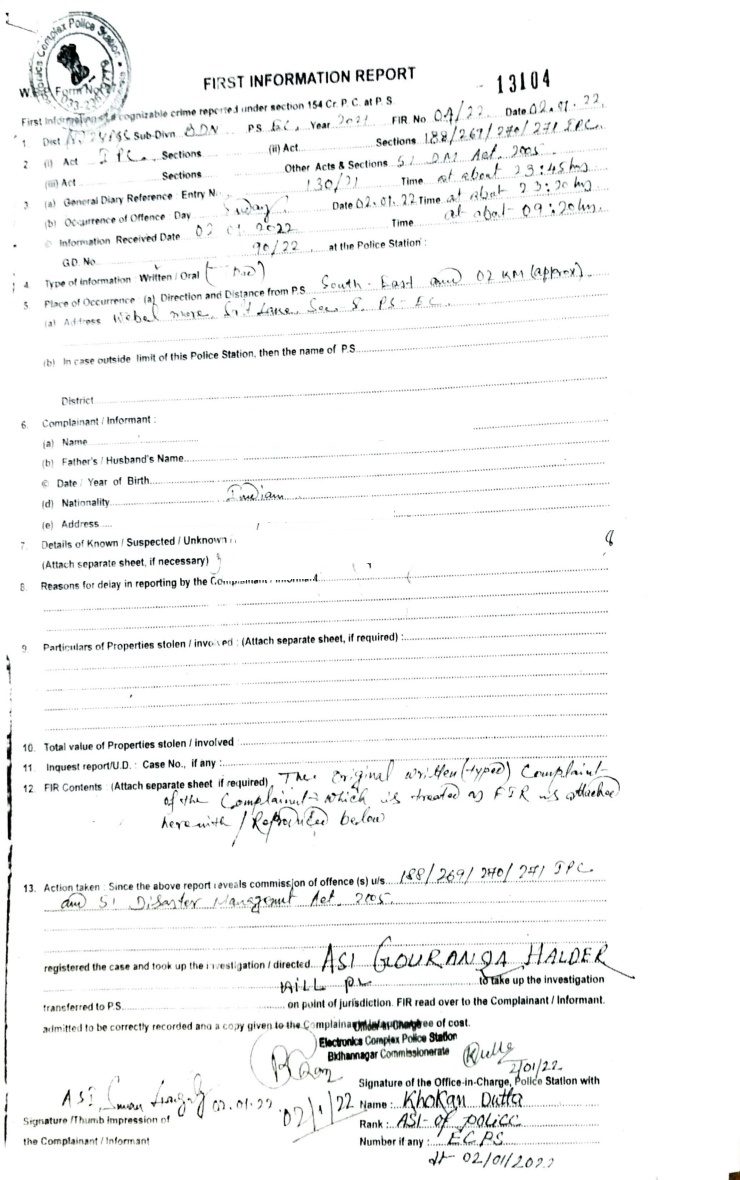 Complex Police Station
FIRST INFORMATION REPORT
13104
W Form No
First Information of a cognizable crime reported under section 154 Cr. P. C. at P. S.
1 Dist Sub-Divn BDN P.S. EC, Year 2021 FIR No 04/22 Date 02.01.22,
2 (i) Act IPC. Sections (ii) Act Sections 188/269/270/271 IPC.
(iii) Act Sections Other Acts & Sections 51 DM Act, 2005
3 (a) General Diary Reference : Entry N 130/21 Time at about 23:45 hrs
(b) Occurrence of Offence : Day Sunday Date 02.01.22 Time at about 23:20 hrs
© Information Received Date 02 01 2022 Time at abot 09:20 hrs.
G.D. No 90/22 at the Police Station :
4. Type of Information : Written / Oral
5. Place of Occurrence : (a) Direction and Distance from P.S. South-East and 02 KM (approx).
(a) Address Webel more, Lane, Sec 5, PS-EC.
(b) In case outside limit of this Police Station, then the name of P.S
District
6. Complainant / Informant :
(a) Name
(b) Father's / Husband's Name
© Date / Year of Birth
(d) Nationality Indian
(e) Address
7. Details of Known / Suspected / Unknown
(Attach separate sheet, if necessary)
8
8. Reasons for delay in reporting by the Complainant / Informant
9. Particulars of Properties stolen / involved : (Attach separate sheet, if required) :
10. Total value of Properties stolen / involved
11. Inquest report/U.D. : Case No., if any :
12. FIR Contents (Attach separate sheet if required) The Original written (typed) Complaint
of the Complainant which is treated as FIR is attached
herewith / Reproduced below
13. Action taken : Since the above report reveals commission of offence (s) u/s 188/269/270/271 IPC
and 51 Disaster Management Act, 2005.
registered the case and took up the investigation / directed ASI GOURANGA HALDER
WILL to take up the investigation
transferred to P.S. on point of jurisdiction. FIR read over to the Complainant / Informant.
admitted to be correctly recorded and a copy given to the Complainant free of cost.
Officer-in-Charge
Electronics Complex Police Station
Bidhannagar Commissionerate
2/01/22
02/1/22
ASI 02.01.22
Signature of the Office-in-Charge, Police Station with
Name : Khokan Dutta
Signature /Thumb Impression of
Rank : ASI of police
the Complainant / Informant
Number if any : ECPS
dt- 02/01/2022